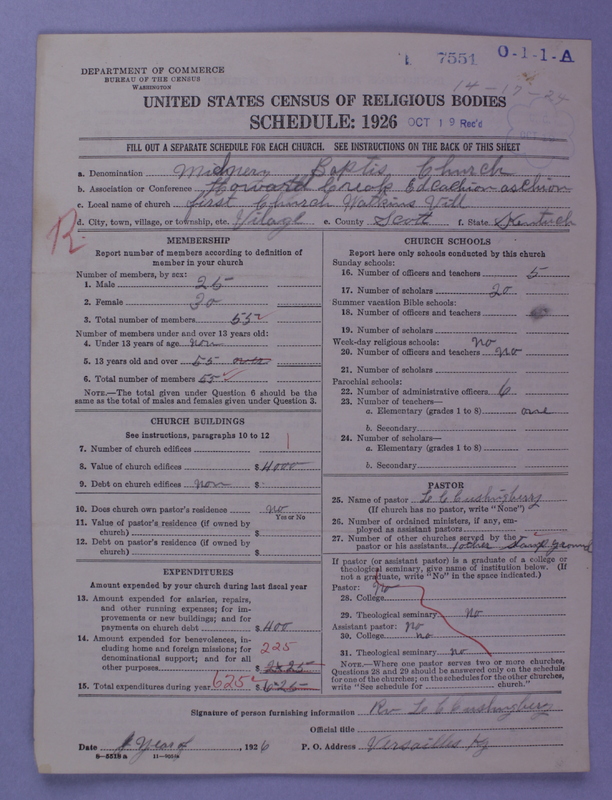 1 7551 O-1-1-A
14-17-24
DEPARTMENT OF COMMERCE
BUREAU OF THE CENSUS
WASHINGTON
UNITED STATES CENSUS OF RELIGIOUS BODIES
SCHEDULE: 1926
OCT 19 Rec'd
FILL OUT A SEPARATE SCHEDULE FOR EACH CHURCH. SEE INSTRUCTIONS ON THE BACK OF THIS SHEET
a. Denomination Baptis Church
b. Association or Conference Howard Creek
c. Local name of church first Church Watkins Vill
d. City, town, village, or township, etc. Vilage e. County Scott f. State Kentuch
R
MEMBERSHIP
Report number of members according to definition of
member in your church
Number of members, by sex:
1. Male 25
2. Female 30
3. Total number of members 55
Number of members under and over 13 years old:
4. Under 13 years of age non
5. 13 years old and over 55 over
6. Total number of members 55
NOTE.—The total given under Question 6 should be the
same as the total of males and females given under Question 3.
CHURCH BUILDINGS
See instructions, paragraphs 10 to 12
7. Number of church edifices 1
8. Value of church edifices $4000
9. Debt on church edifices non $
10. Does church own pastor's residence no
Yes or No
11. Value of pastor's residence (if owned by
church) $
12. Debt on pastor's residence (if owned by
church) $
EXPENDITURES
Amount expended by your church during last fiscal year
13. Amount expended for salaries, repairs,
and other running expenses; for im-
provements or new buildings; and for
payments on church debt $400
14. Amount expended for benevolences, in-
cluding home and foreign missions; for 225
denominational support; and for all
other purposes $2825
15. Total expenditures during year 625 $625
CHURCH SCHOOLS
Report here only schools conducted by this church
Sunday schools:
16. Number of officers and teachers 5
17. Number of scholars 20
Summer vacation Bible schools:
18. Number of officers and teachers
19. Number of scholars
Week-day religious schools: No
20. Number of officers and teachers no
21. Number of scholars
Parochial schools:
22. Number of administrative officers 6
23. Number of teachers—
a. Elementary (grades 1 to 8) one
b. Secondary
24. Number of scholars—
a. Elementary (grades 1 to 8)
b. Secondary
PASTOR
25. Name of pastor L C Cushingbery
(If church has no pastor, write "None")
26. Number of ordained ministers, if any, em-
ployed as assistant pastors
27. Number of other churches served by the
pastor or his assistants 1 other Stamp ground
If pastor (or assistant pastor) is a graduate of a college or
theological seminary, give name of institution below. (If
not a graduate, write "No" in the space indicated.)
Pastor: no
28. College
29. Theological seminary no
Assistant pastor: no
30. College no
31. Theological seminary no
NOTE.—Where one pastor serves two or more churches,
Questions 28 and 29 should be answered only on the schedule
for one of the churches; on the schedules for the other churches,
write "See schedule for church."
Signature of person furnishing information Rv L C Cushingbery
Official title
Date Year of, 1926 P. O. Address Versailles Ky
8-5518a